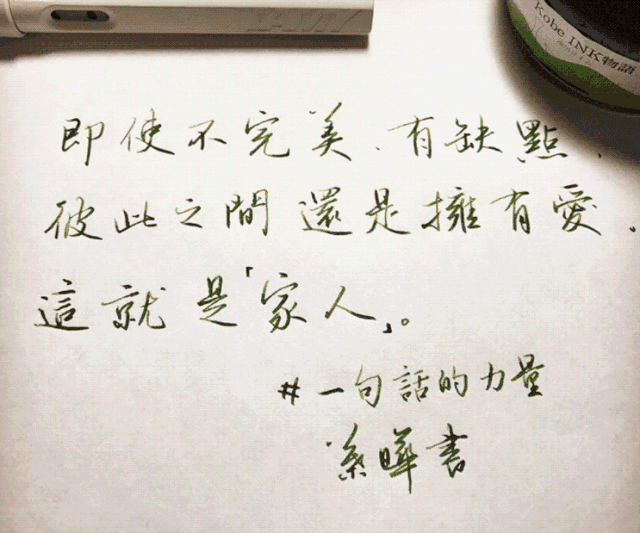 LAMY
Kobe INK物語
即使不完美、有缺點、
彼此之間還是擁有愛、
這就是「家人」。
#一句話的力量
葉曄書